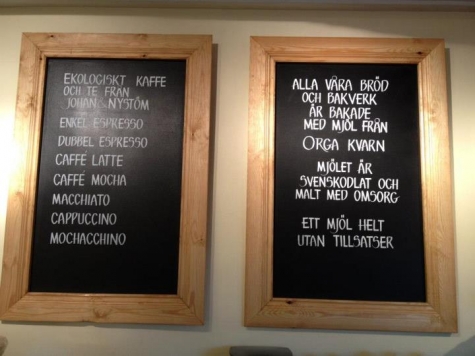 EKOLOGISKT KAFFE
OCH TE FRÅN
JOHAN & NYSTÖM
ENKEL ESPRESSO
DUBBEL ESPRESSO
CAFFE LATTE
CAFFE MOCHA
MACCHIATO
CAPPUCCINO
MOCHACCHINO
ALLA VÅRA BRÖD
OCH BAKVERK
ÄR BAKADE
MED MJÖL FRÅN
ORGA KVARN
MJÖLET ÄR
SVENSKODLAT OCH
MALT MED OMSORG
ETT MJÖL HELT
UTAN TILLSATSER